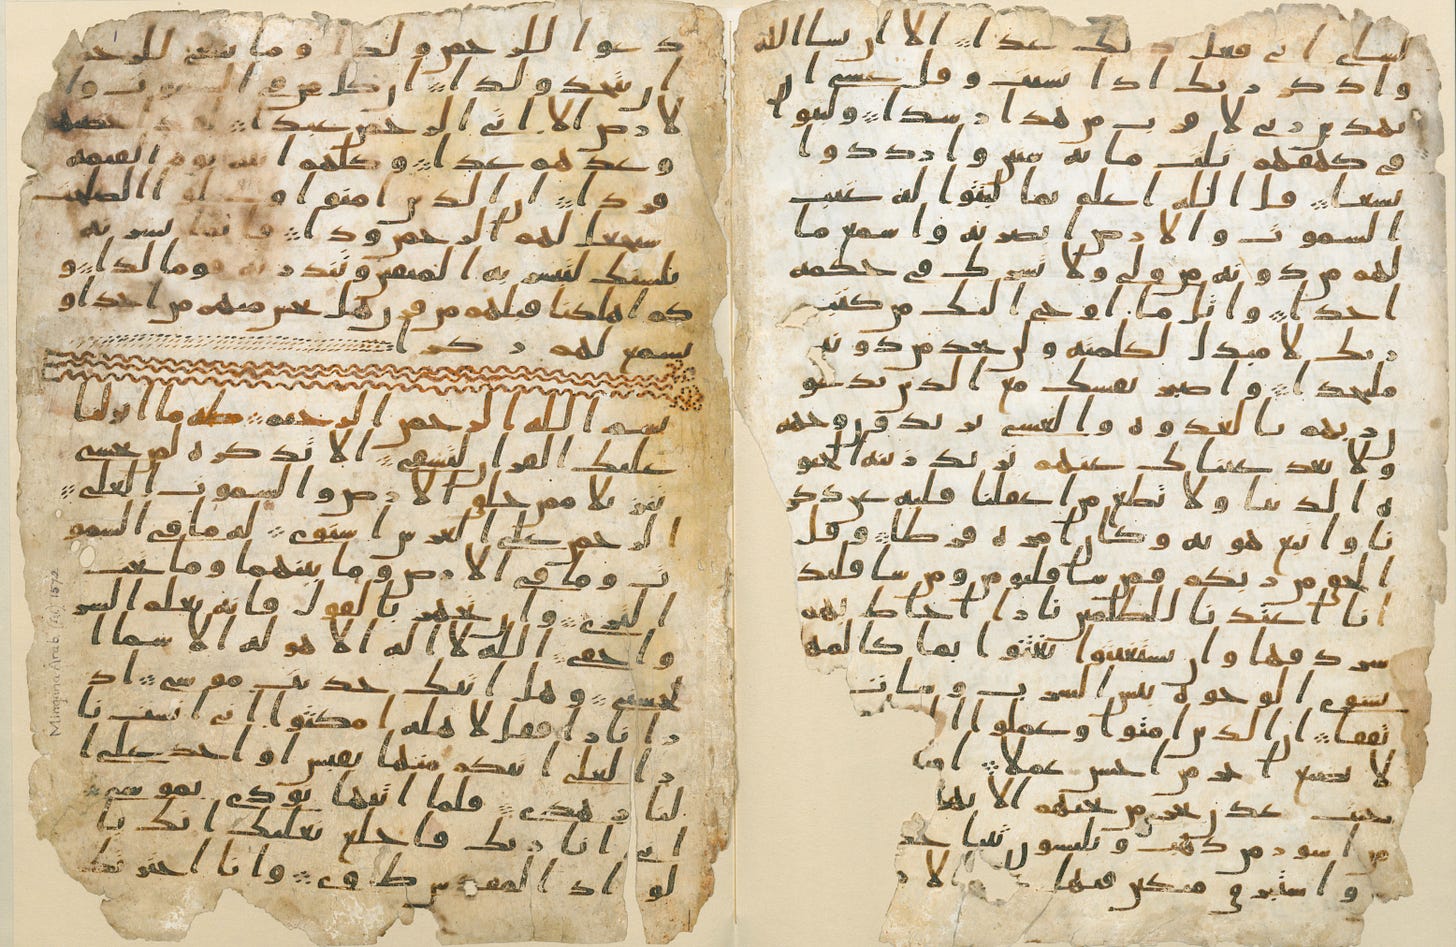 لشاى انى فعل ذلك غدا الا ان يشا الله
واذكر ربك اذا نسيت وقل عسى ا
يهدين ربى لاقرب من هذا رشدا ولبثوا
فى كهفهم ثلث مايه سنين وازددوا
تسعا قل الله اعلم بما لبثوا له غيب
السموت والارض ابصر به واسمع ما
لهم من دونه من ولى ولا يشرك فى حكمه
احدا واتل ما اوحى اليك من كتب
ربك لا مبدل لكلمته ولن تجد من دونه
ملتحدا واصبر نفسك مع الذين يدعو
ن ربهم بالغدوه والعشى يريدون وجهه
ولا تعد عيناك عنهم تريد زينه الحيو
ه الدنيا ولا تطع من اغفلنا قلبه عن ذكر
نا واتبع هويه وكان امره فرطا وقل
الحق من ربكم فمن شا فليومن ومن شا فليكفر
انا اعتدنا للظلمين نارا احاط بهم
سردقها وان يستغيثوا يغثوا بما كالمه
يشوى الوجوه بيس الشرب وسات
تفقا ان الذين امنوا وعملوا ا
لا نضيع اجر من احسن عملا او
جنت عدن تجرى من تحتهم الانها
من اسور من ذهب ويلبسون ثيبا خ
واستبرق متكين فيها الار
دعوا للرحمن ولدا وما ينبغى للرحمن
ان يتخذ ولدا ان كل من فى السموت وا
لارض الا اتى الرحمن عبدا لقد احصيهم
وعدهم عدا وكلهم اتيه يوم القيمه
فردا ان الذين امنوا وعملوا الصلحت
سيجعل لهم الرحمن ودا فانما يسرنه
بلسنك لتبشر به المتقين وتنذر به قوما لدا و
كم اهلكنا قبلهم من قرن هل تحس منهم من احد او
تسمع لهم ركزا
بسم الله الرحمن الرحيم طه ما انزلنا
عليك القران لتشقى الا تذكره لمن يخشى
تنزيلا ممن خلق الارض والسموت العلى
الرحمن على العرش استوى له ما فى السمو
ت وما فى الارض وما بينهما وما تحت
الثرى وان تجهر بالقول فانه يعلم السر
واخفى الله لا اله الا هو له الاسما ا
لحسنى وهل اتيك حديث موسى اذ
را نارا فقل لاهله امكثوا انى انست نا
را لعلى اتيكم منها بقبس او اجد على ا
لنار هدى فلما اتيها نودى يموسى
انى انا ربك فاخلع نعليك انك با
لواد المقدس طوى وانا اخترتك
Mingana Arab. (Isl) 1572